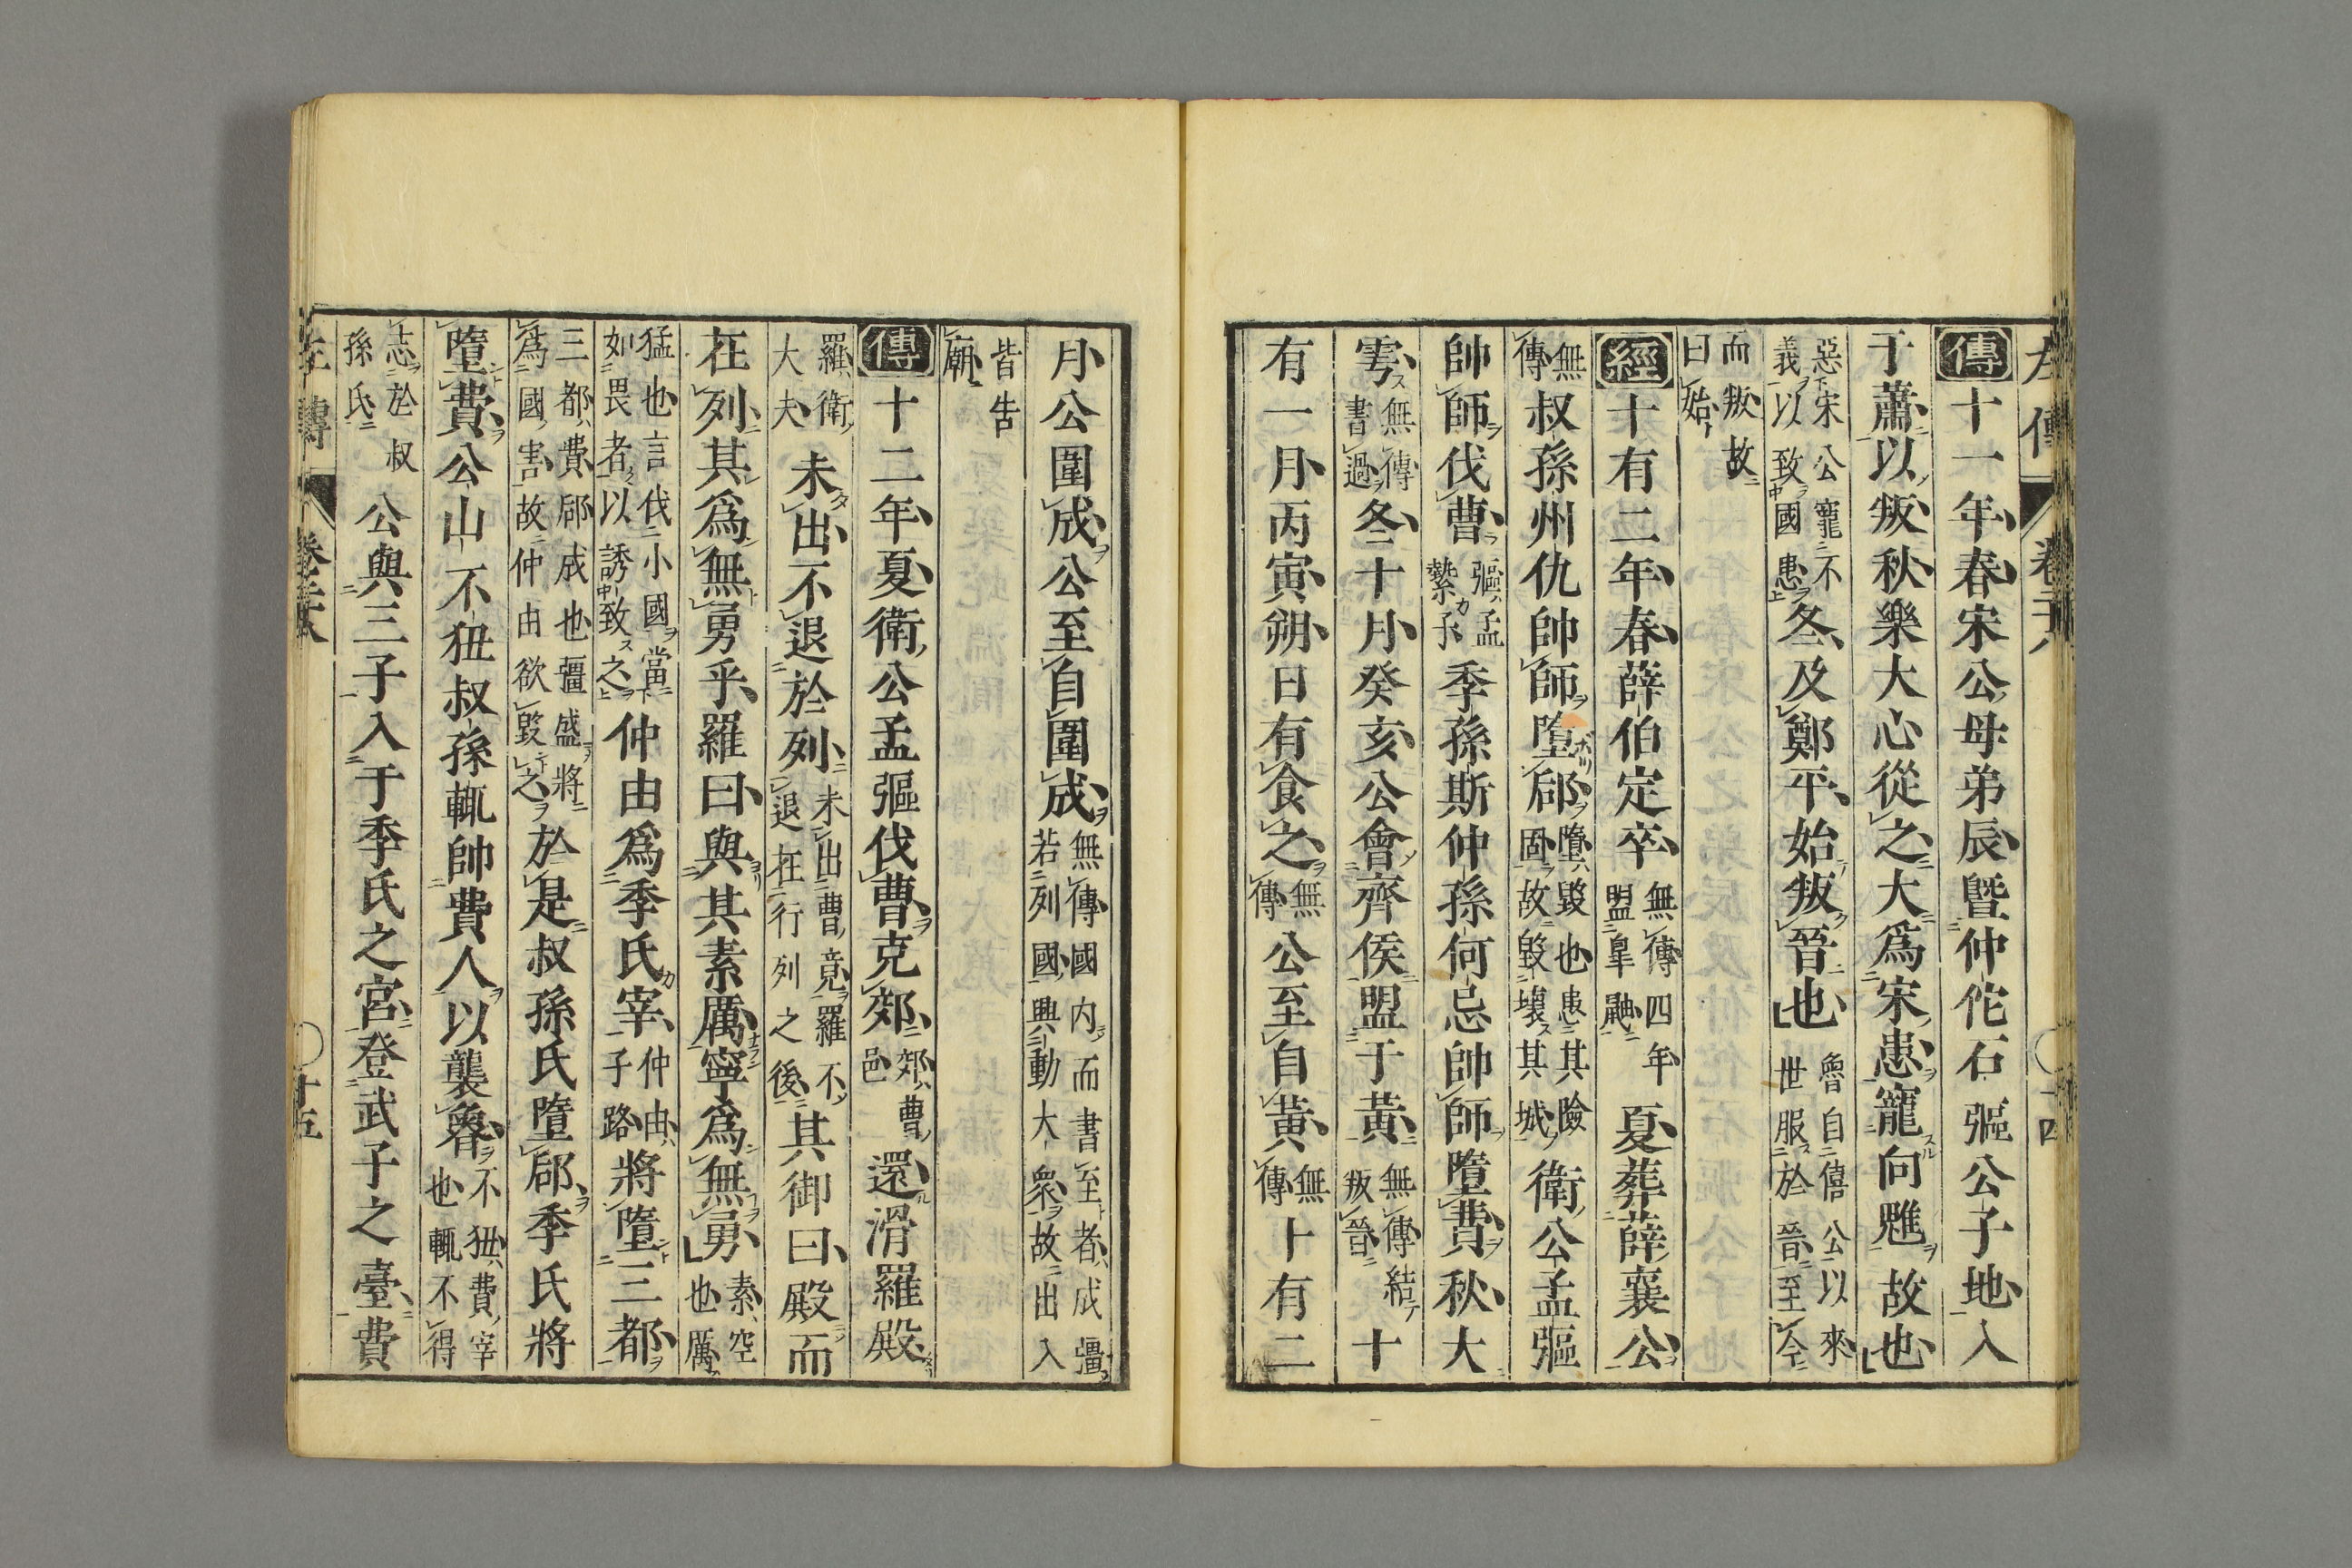 左傳 卷二十八 〇十四
傳十一年春宋公母弟辰曁仲佗石彄公子地入
于蕭以叛秋樂大心從之大爲宋患寵向魋故也
惡宋公寵不
義以致國患
冬及鄭平始叛晉也
魯自僖公以來
世服於晉至今
而叛故
曰始
經十有二年春薛伯定卒
無傳四年
盟皐鼬
夏葬薛襄公
無
傳
叔孫州仇帥師墮郈
墮毀也患其險
固故毀壞其城
衛公孟彄
帥師伐曹
彄孟
縶子
季孫斯仲孫何忌帥師墮費秋大
雩
無傳
書過
冬十月癸亥公會齊侯盟于黃
無傳結
叛晉
十
有一月丙寅朔日有食之
無
傳
公至自黃
無
傳
十有二
月公圍成公至自圍成
無傳國内而書至者成彊
若列國興動大衆故出入
皆告
廟
傳十二年夏衛公孟彄伐曹克郊
郊曹
邑
還滑羅殿
羅衛
大夫
未出不退於列
未出曹竟羅不
退在行列之後
其御曰殿而
在列其爲無勇乎羅曰與其素厲寧爲無勇
素空
也厲
猛也言伐小國當
如畏者以誘致之
仲由爲季氏宰
仲由
子路
將墮三都
三都費郈成也彊盛將
爲國害故仲由欲毀之
於是叔孫氏墮郈季氏將
墮費公山不狃叔孫輒帥費人以襲魯
不狃費宰
也輒不得
志於叔
孫氏
公與三子入于季氏之宮登武子之臺費
左傳 卷二十八 〇十五